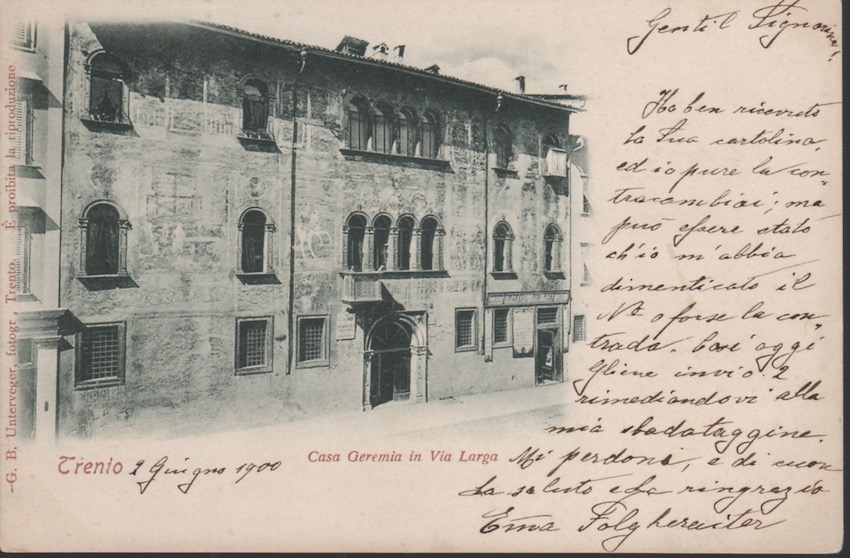 Gentil Signorina!
Ho ben ricevuto
la Sua cartolina,
ed io pure la con-
tracambiai; ma
può essere stato
ch'io m'abbia
dimenticato il
No o forse la con-
trada. Così oggi
Gliene invio 2
rimediandovi alla
mia sbadataggine.
Mi perdoni, e di cuor
La saluto e La ringrazio
Ema Folgheraiter
Trento 2 Giugno 1900
Casa Geremia in Via Larga
G. B. Unterveger, fotogr., Trento. È proibita la riproduzione.